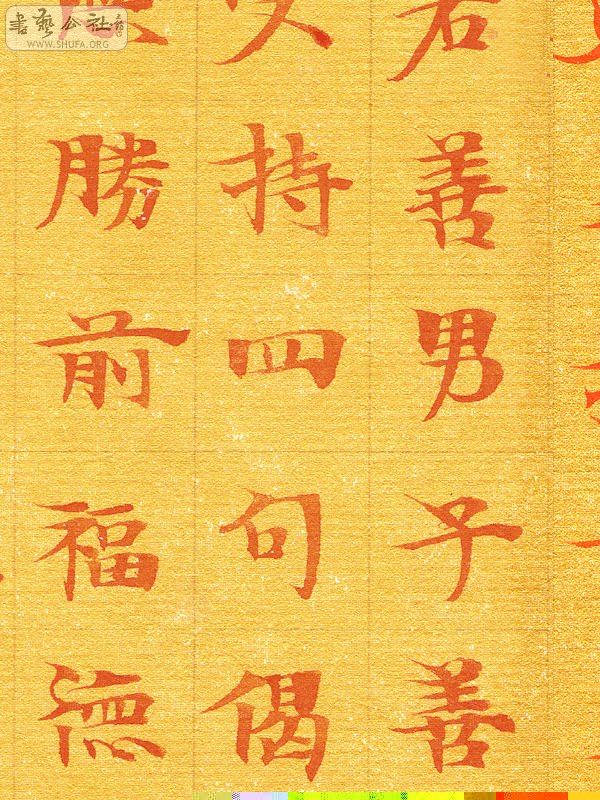 若善男子善
持四句偈
勝前福德
書藝公社
WWW.SHUFA.ORG